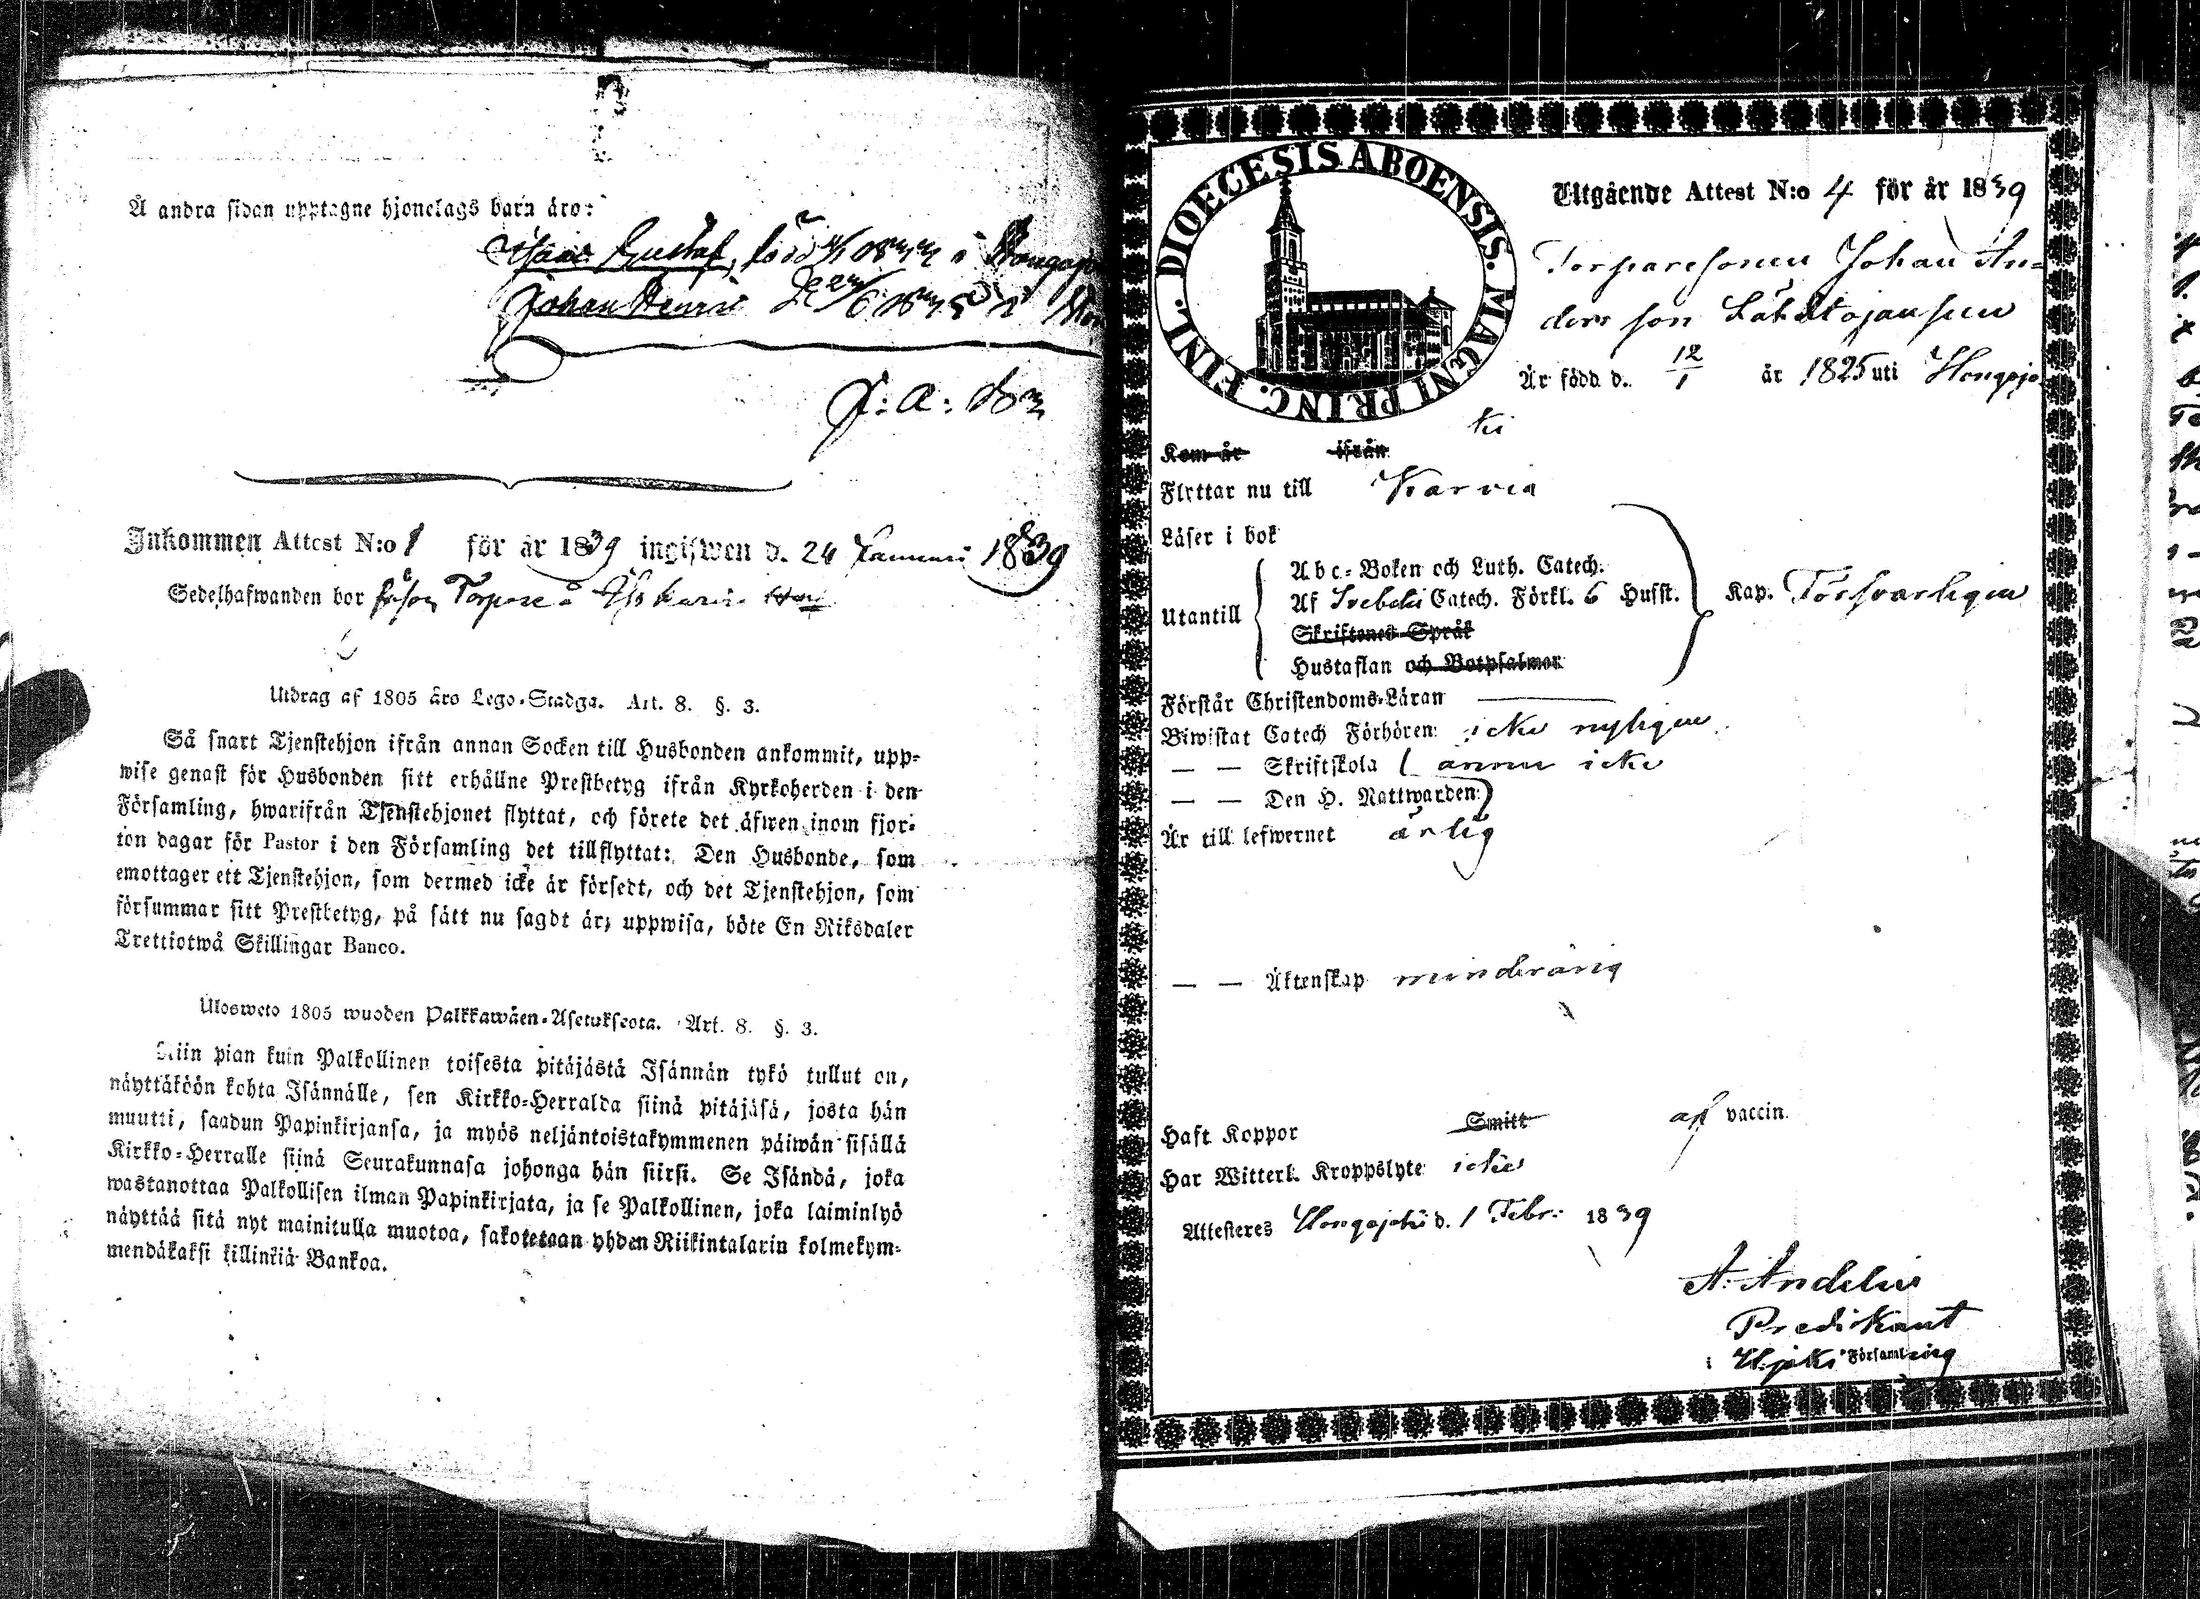 Å andra sidan upptagne hjonelags barn äro:
Gustaf, född i
Johan Henric
Inkommen Attest N:o 1 för år 1839 ingifwen d. 24 1839
Sedelhafwanden bor Torpare
Utdrag af 1805 års Lego-Stadga. Art. 8. §. 3.
Så snart Tjenstehjon ifrån annan Socken till Husbonden ankommit, upp-
wise genast för Husbonden sitt erhållne Prestbetyg ifrån Kyrkoherden i den
Församling, hwarifrån Tjenstehjonet flyttat, och förete det äfwen inom fjor-
ton dagar för Pastor i den Församling det tillflyttat: Den Husbonde, som
emottager ett Tjenstehjon, som dermed icke är försedt, och det Tjenstehjon, som
försummar sitt Prestbetyg, på sätt nu sagdt är, uppwisa, böte En Riksdaler
Trettiotwå Skillingar Banco.
Ulosweto 1805 wuoden Palkkawäen-Asetuksesta. Art. 8. §. 3.
Niin pian kuin Palkollinen toisesta pitäjästä Isännän tykö tullut on,
näyttäköön kohta Isännälle, sen Kirkko-Herralda siinä pitäjäsä, josta hän
muutti, saadun Papinkirjansa, ja myös neljäntoistakymmenen päiwän sisällä
Kirkko-Herralle siinä Seurakunnasa johonga hän siirsi. Se Isändä, joka
wastanottaa Palkollisen ilman Papinkirjata, ja se Palkollinen, joka laiminlyö
näyttää sitä nyt mainitulla muotoa, sakotetaan yhden Riikintalarin kolmekym-
mendäkaksi killinkiä Bankoa.
DIOECESIS ABOENSIS. MAGNI PRINC. FINL.
Utgående Attest N:o 4 för år 1839
Torparesonen Johan An-
ders son
Är född d. 12/1 år 1825 uti Hongojo
ki
Kom år ifrån
Flyttar nu till Karvia
Läser i bok
Utantill
Abc-Boken och Luth. Catech.
Af Svebelii Catech. Förkl. 6 Husst.
Skriftenes Språk
Hustaflan och Botpsalmer
Kap. Försvarligen
Förstår Christendoms-Läran
Biwistat Catech Förhören: icke nyligen
— — Skriftskola ännu icke
— — Den H. Nattwarden
Är till lefwernet ärlig
— — Äktenskap minderårig
Haft Koppor Smitt af vaccin.
Har Witterl. Kroppslyte icke
Attesteres Hongojoki d. 1 Febr: 1839
A. Andelin
Predikant
i H:joki Församling